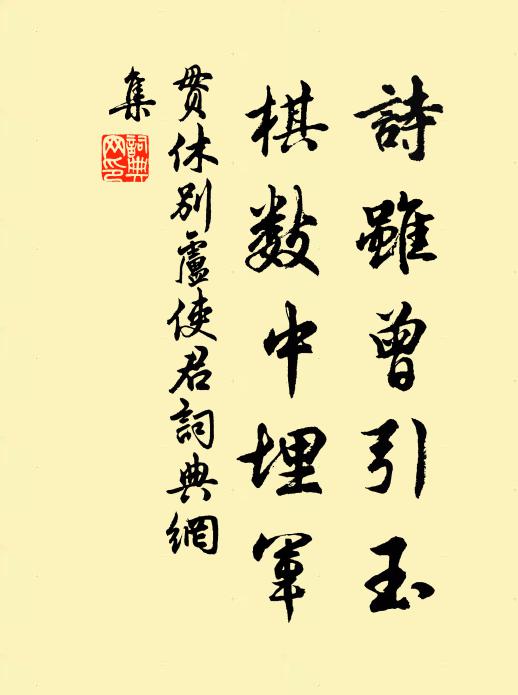 詩雖曾引玉
棋數中埋軍
貫休別盧使君詞典網
集
詞典
网印